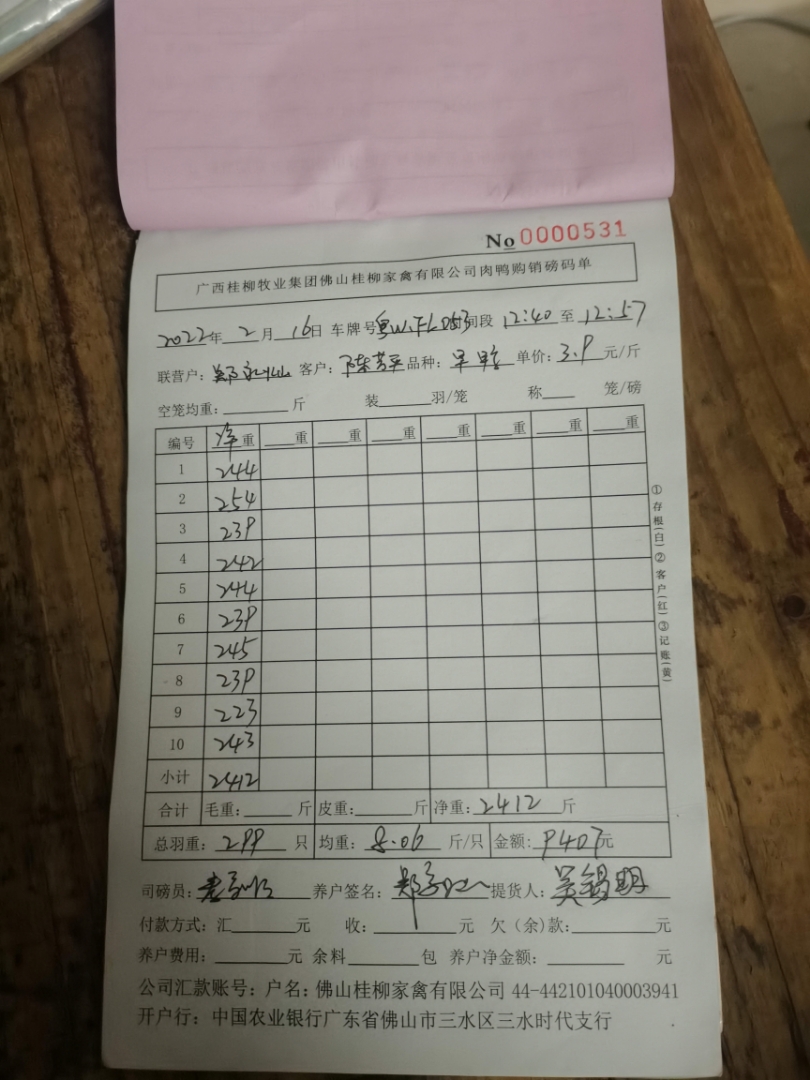 No 0000531
广西桂柳牧业集团佛山桂柳家禽有限公司肉鸭购销磅码单
2022年 2月 16日 车牌号 间段 12:40 至 12:57
联营户: 郑 客户: 陈芳平 品种: 单价: 3.9 元/斤
空笼均重: 斤 装 羽/笼 称 笼/磅
编号 净重 重 重 重 重 重 重 重
1 244
2 254
3 239
4 242
5 244
6 239
7 245
8 239
9 223
10 243
小计 2412
合计 毛重: 斤 皮重: 斤 净重: 2412 斤
总羽重: 299 只 均重: 8.06 斤/只 金额: 9407元
司磅员: 养户签名: 郑 提货人: 吴锡明
付款方式: 汇 元 收: 元 欠(余)款: 元
养户费用: 元 余料 包 养户净金额: 元
公司汇款账号: 户名: 佛山桂柳家禽有限公司 44-442101040003941
开户行: 中国农业银行广东省佛山市三水区三水时代支行
①存根(白)②客户(红)③记账(黄)